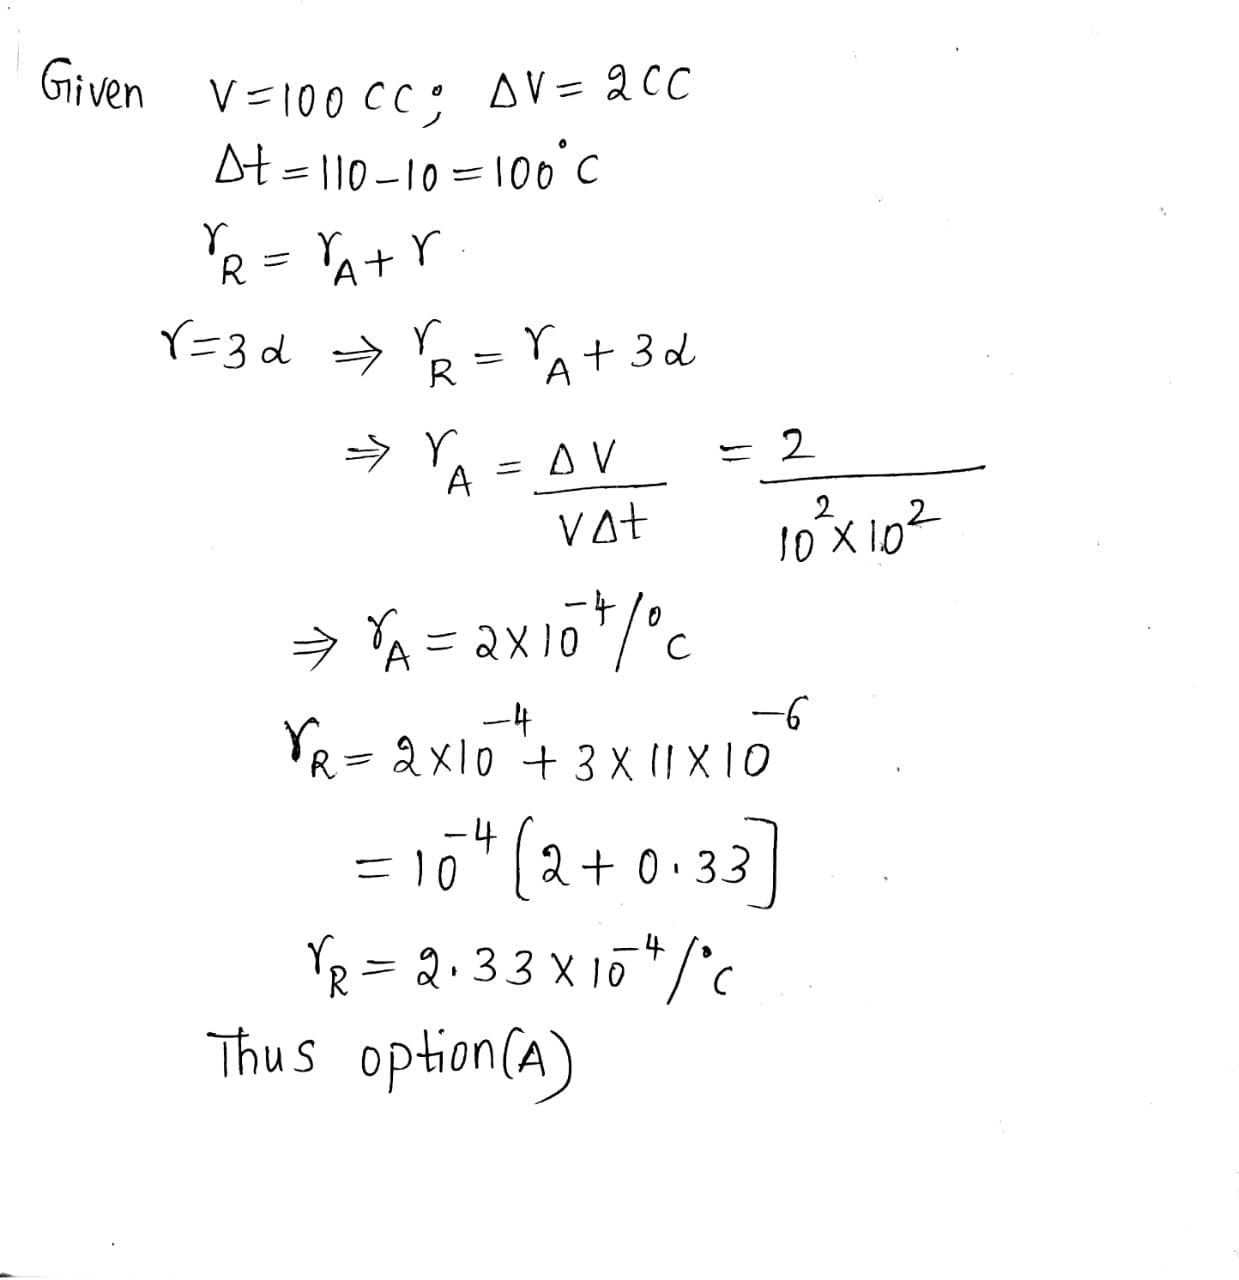 Given V=100 CC; ΔV = 2CC
Δt = 110-10 = 100°C
γ_R = γ_A + γ
γ=3α ⇒ γ_R = γ_A + 3α
⇒ γ_A = ΔV / VΔt = 2 / 10² × 10²
⇒ γ_A = 2×10⁻⁴/°C
γ_R = 2×10⁻⁴ + 3×11×10⁻⁶
= 10⁻⁴ [2 + 0.33]
γ_R = 2.33 × 10⁻⁴/°C
Thus option(A)